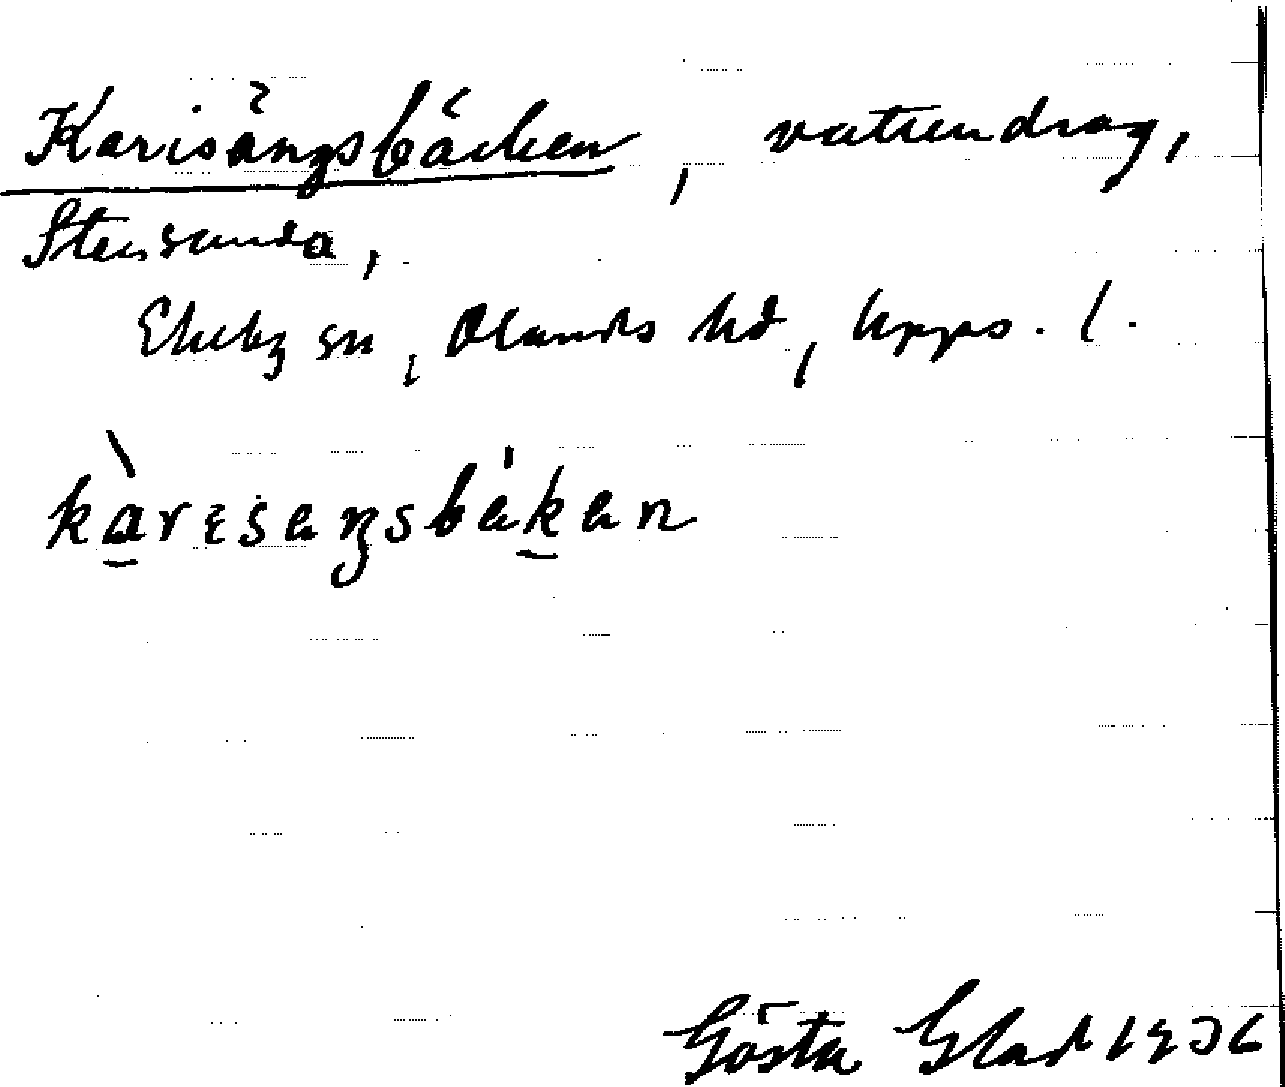 Karisängsbäcken, vattendrag,
Stensunda,
Ekeby sn, Olands hd, Upps. l.
kàrɩseŋsbékan
Gösta Glad 1936